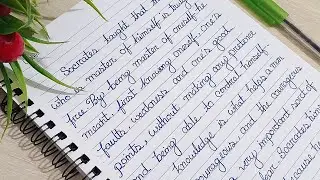 Socrates taught that
who is master of himself is truly
free. By being master of oneself he
meant, first knowing oneself, one's
faults, weakness and one's good
points, without making any pretence
and being able to control himself
knowledge is what helps a man
courageous, and the courageous
a very important sort of
fear. Socrates
because he